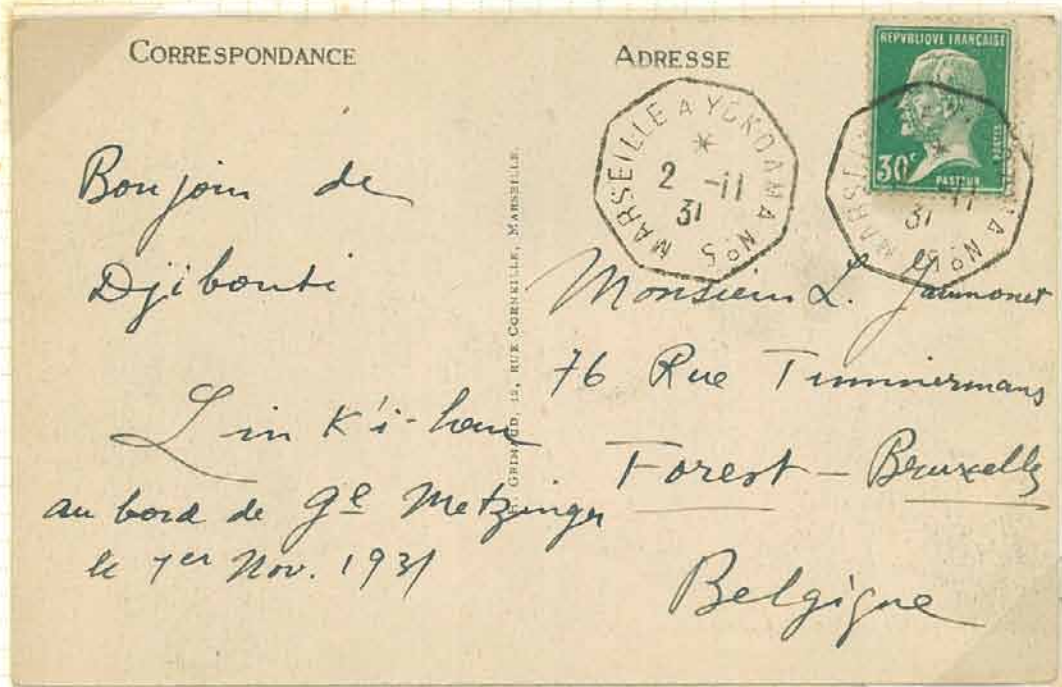 CORRESPONDANCE
Bonjour de
Djibouti
Lin K'i-han
au bord de Gl Metzinger
le 1er Nov. 1931
GRIMAUD, 12, RUE CORNEILLE, MARSEILLE.
ADRESSE
MARSEILLE A YOKOAMA No 5
2 -11
31
REPVBLIQVE FRANÇAISE
30c
POSTES
PASTEUR
MARSEILLE
31
Monsieur L.
76 Rue Timmermans
Forest - Bruxelles
Belgique